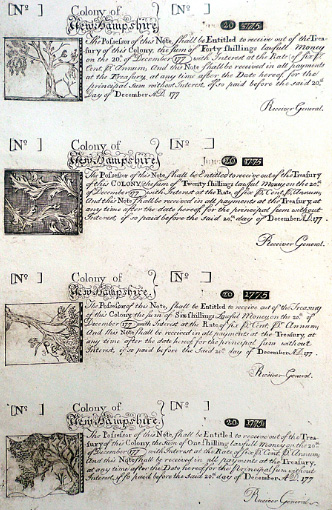 [Nº ] Colony of } [Nº ]
New Hampshire June 20 1775
The Possessor of this Note, shall be Entitled to receive out of the Trea-
sury of this Colony, the sum of Forty Shillings lawfull Money
on the 20th of December 177 with Interest at the Rate of six pr.
Cent. pr. Annum, And this Note shall be received in all payments
at the Treasury, at any time after the Date hereof for the
principal Sum without Interest, if so paid before the said 20th
Day of December A.D. 177
Receiver General.
[Nº ] Colony of } [Nº ]
New Hampshire June 20 1775
The Possessor of this Note, shall be Entitled to receive out of the Treasury
of this COLONY, the sum of Twenty Shillings lawful Money on the 20th
of December 177 with Interest at the Rate of six pr. Cent. pr. Annum,
And this Note shall be received in all payments at the Treasury, at
any time after the date hereof, for the principal sum without
Interest, if so paid before the said 20th day of December A.D. 177
Receiver General.
[Nº ] Colony of } [Nº ]
New Hampshire 20 1775
The Possessor of this Note, shall be Entitled to receive out of the Treasury
of this Colony the sum of Six shillings Lawful Money on the 20th of
December 177 with Interest at the Rate of six pr. Cent. pr. Annum,
And this Note shall be received in all payments at the Treasury, at
any time after the date hereof for the principal sum without
Interest, if so paid before the Said 20th day of December A.D. 177
Receiver General.
[Nº ] Colony of } [Nº ]
New Hampshire 20 1775
The Possessor of this Note, shall be Entitled to receive out of the Trea-
sury of this Colony, the sum of One Shilling lawfull Money on the 20th
of December 177 with Interest at the Rate of six pr. Cent. pr. Annum,
And this Note shall be received in all payments at the Treasury,
at any time after the Date hereof for the Principal sum without
Interest, if so paid before the said 20th day of December A.D. 177
Receiver General.